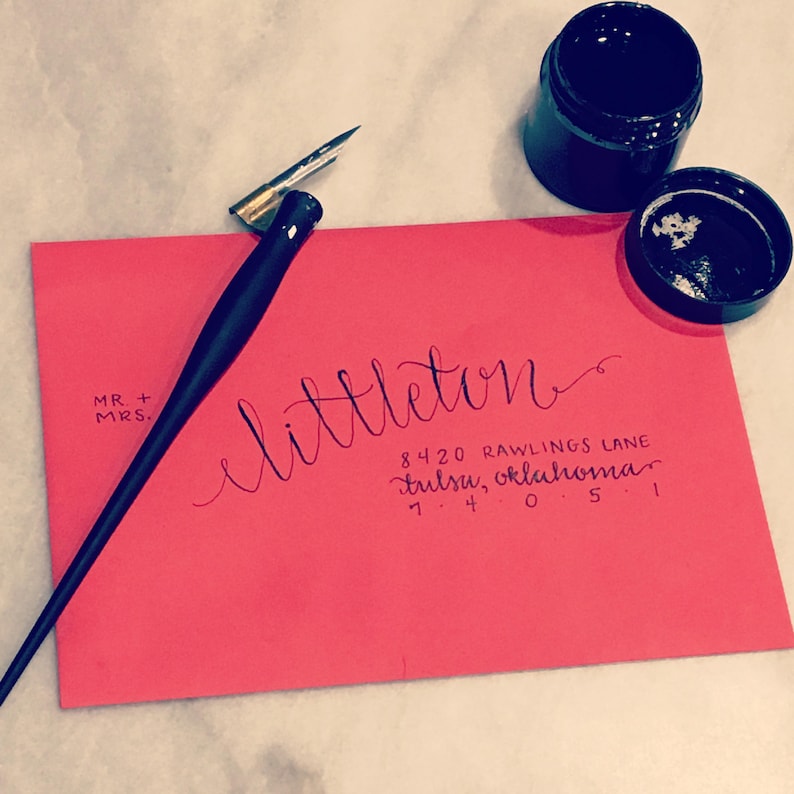 MR. +
MRS.
littleton
8420 RAWLINGS LANE
tulsa, oklahoma
7 · 4 · 0 · 5 · 1